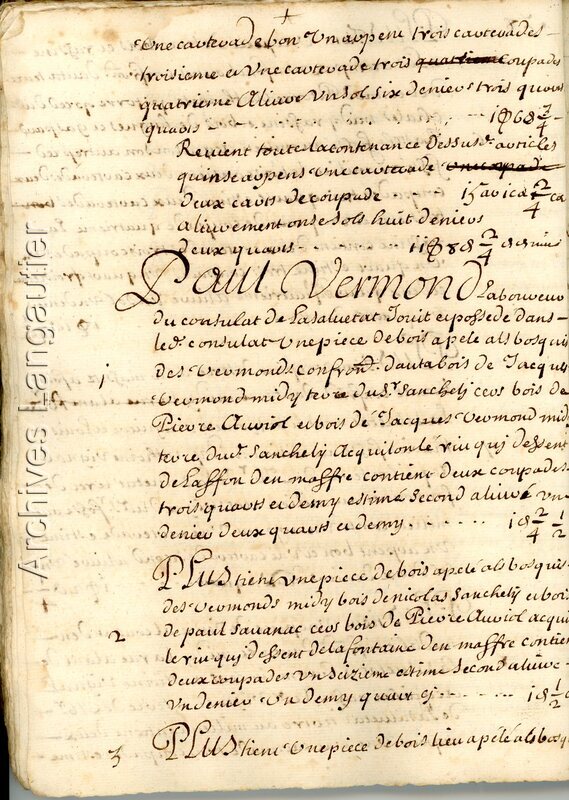 une carterade bon un arpent trois carterades
troisieme et une carterade trois quattieme Coupades
quatrieme Alivré un sol six deniers trois quarts
quarts 1 6 3/4
Revient toute la contenance dessusd. articles
quinse arpens une carterade une coupade
deux carts de coupade 15 ar 1 ca 2/4 ca
alivrement onse sols huit deniers
deux quarts 11 8 2/4
Paul Vermond Laboureur
du consulat de Lasalvetat Jouit et possede dans
led. consulat une piece de bois apelé als bosquis
1 des vermonds confrond. d'auta bois de Jacques
Vermond midy terre du Sr. Sanchely cers bois de
Pierre Auriol et bois de Jacques Vermond midy
terre dud. Sanchely Acquilon le riu qui dessent
de Laffon den maffre contient deux coupades
trois quarts et demy estimé second alivré un
denier deux quarts et demy 1 d 2/4 1/2
PLUS tient une piece de bois apelé als bosquis
des vermonds midy bois de nicolas Sanchely et bois
2 de paul savanac cers bois de Pierre Auriol acqui
le riu qui dessent de la fontaine den maffre contient
deux coupades un seizieme estimé Second alivré
un denier un demy quart cj 1 d 1/2
3 PLUS tient une piece de bois lieu apélé als bosq
Archives Langautier